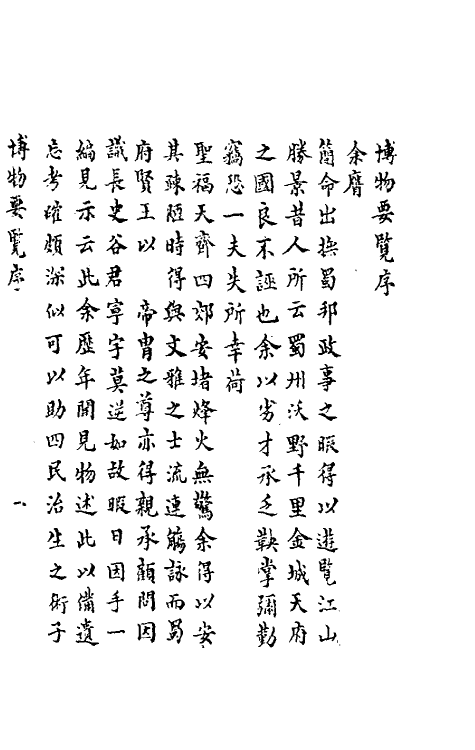 博物要覽序
余膺
簡命出撫蜀邦政事之暇得以遊覽江山
勝景昔人所云蜀州沃野千里金城天府
之國良不誣也余以劣才承乏鞅掌彌勤
竊恐一夫失所幸荷
聖福天齊四郊安堵烽火無驚余得以安
其疎陋時得與文雅之士流連觴詠而蜀
府賢王以 帝胄之尊亦得親承顏問因
識長史谷君寧宇莫逆如故暇日因手一
編見示云此余歷年聞見物述此以備遺
忘考確頗深似可以助四民治生之術子
博物要覽序 一